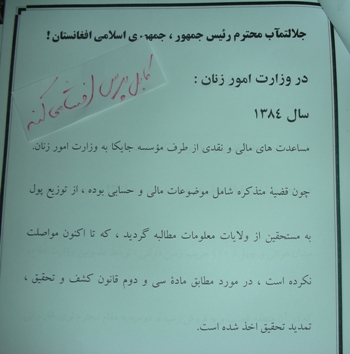 جلالتمآب محترم رئیس جمهور ، جمهوری اسلامی افغانستان !
در وزارت امور زنان :
کابل پرس افشا می کند
سال ١٣٨٤
مساعدت های مالی و نقدی از طرف مؤسسه جایکا به وزارت امور زنان.
چون قضیۀ متذکره شامل موضوعات مالی و حسابی بوده ، از توزیع پول
به مستحقین از ولایات معلومات مطالبه گردید ، که تا اکنون مواصلت
نکرده است ، در مورد مطابق مادۀ سی و دوم قانون کشف و تحقیق ،
تمدید تحقیق اخذ شده است.